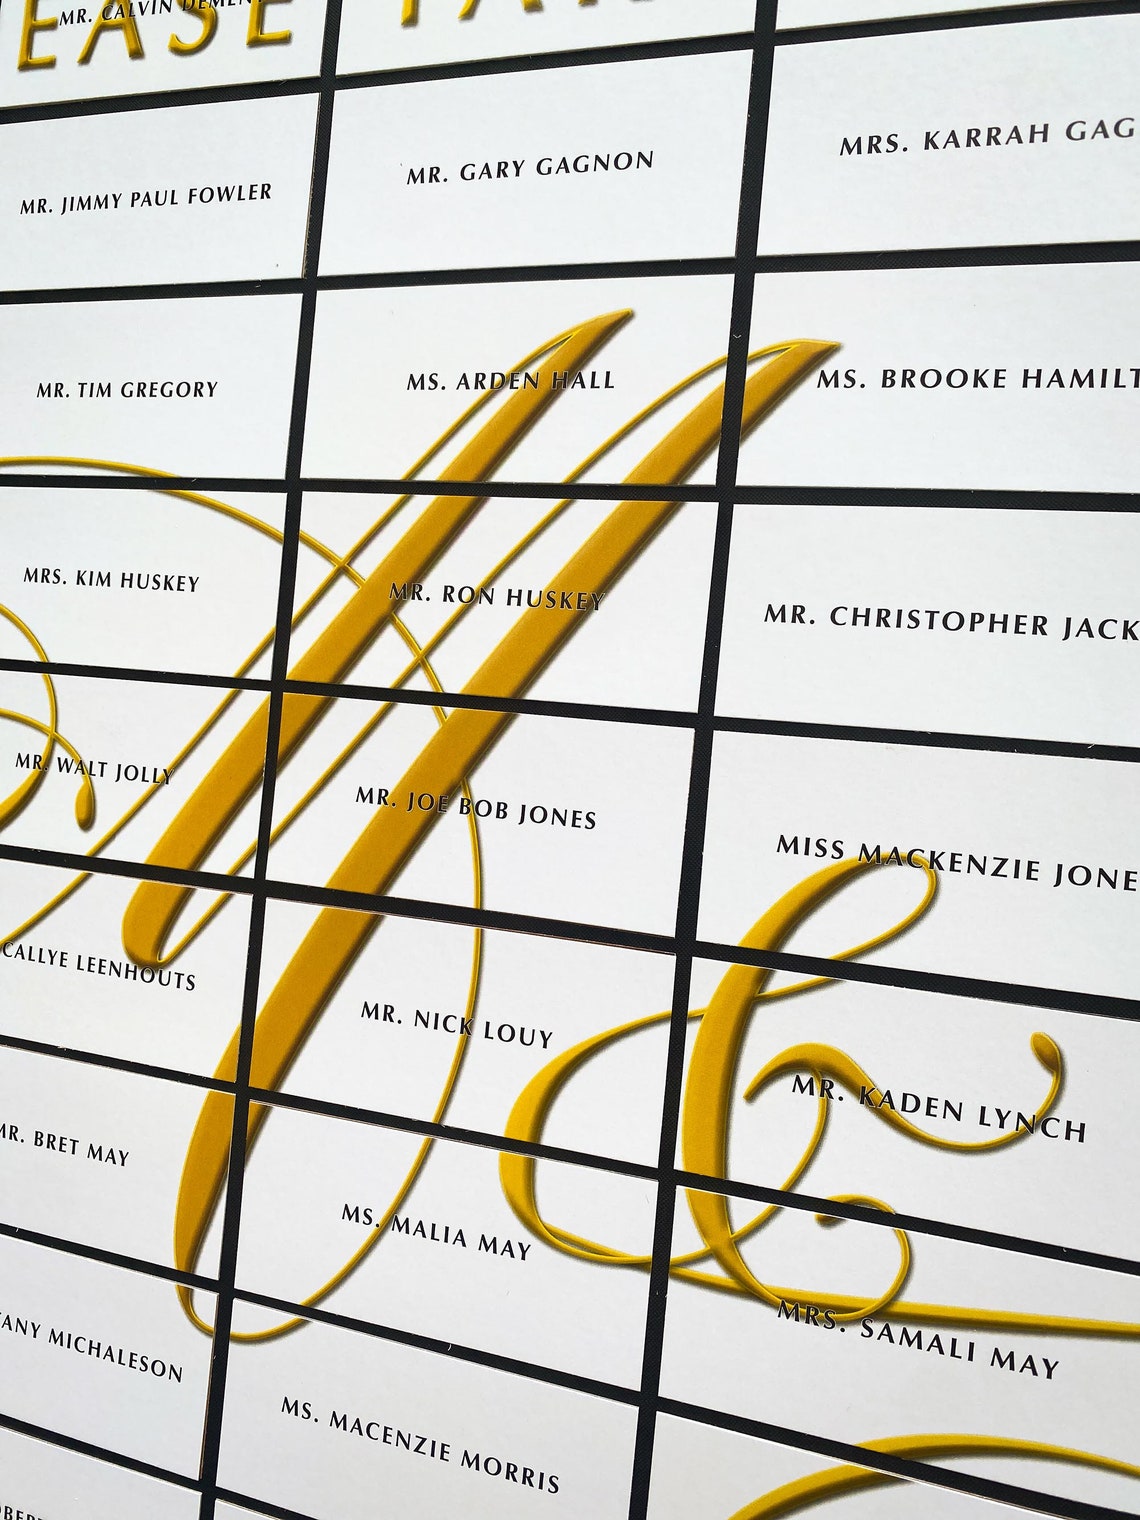 MR. CALVIN
EASE
MR. JIMMY PAUL FOWLER
MR. GARY GAGNON
MRS. KARRAH GAG
MR. TIM GREGORY
MS. ARDEN HALL
MS. BROOKE HAMILT
MRS. KIM HUSKEY
MR. RON HUSKEY
MR. CHRISTOPHER JACK
MR. WALT JOLLY
MR. JOE BOB JONES
MISS MACKENZIE JONE
CALLYE LEENHOUTS
MR. NICK LOUY
MR. KADEN LYNCH
MR. BRET MAY
MS. MALIA MAY
MRS. SAMALI MAY
ANY MICHALESON
MS. MACENZIE MORRIS
M &